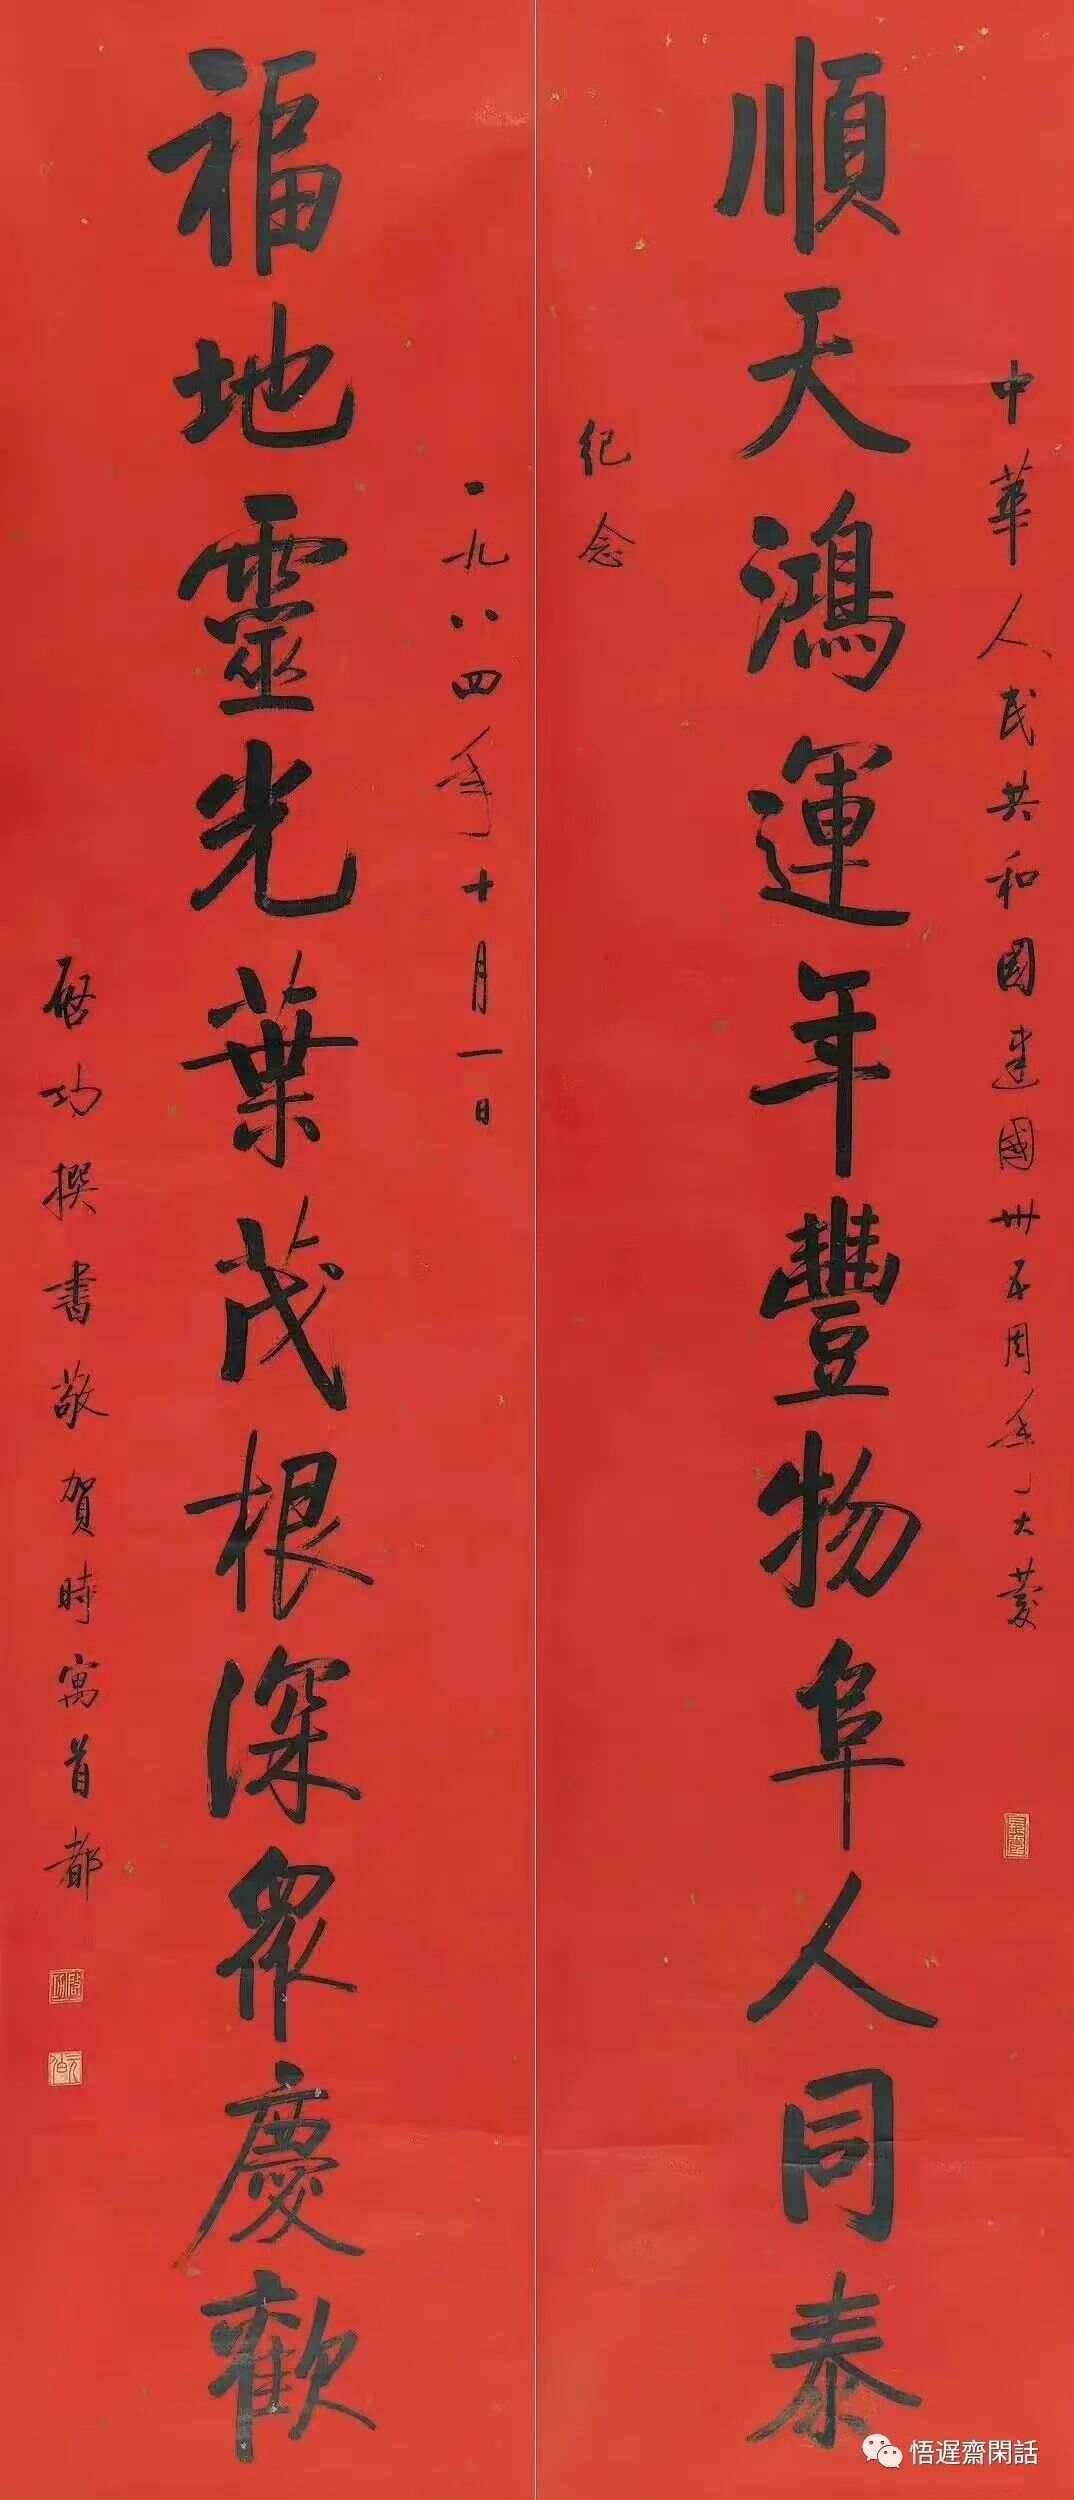 中華人民共和國建國卅五周年大慶
順天鴻運年豐物阜人同泰
紀念
一九八四年十月一日
福地靈光葉茂根深眾慶歡
啟功撰書敬賀時寓首都
啟功
元白
悟遲齋閑話